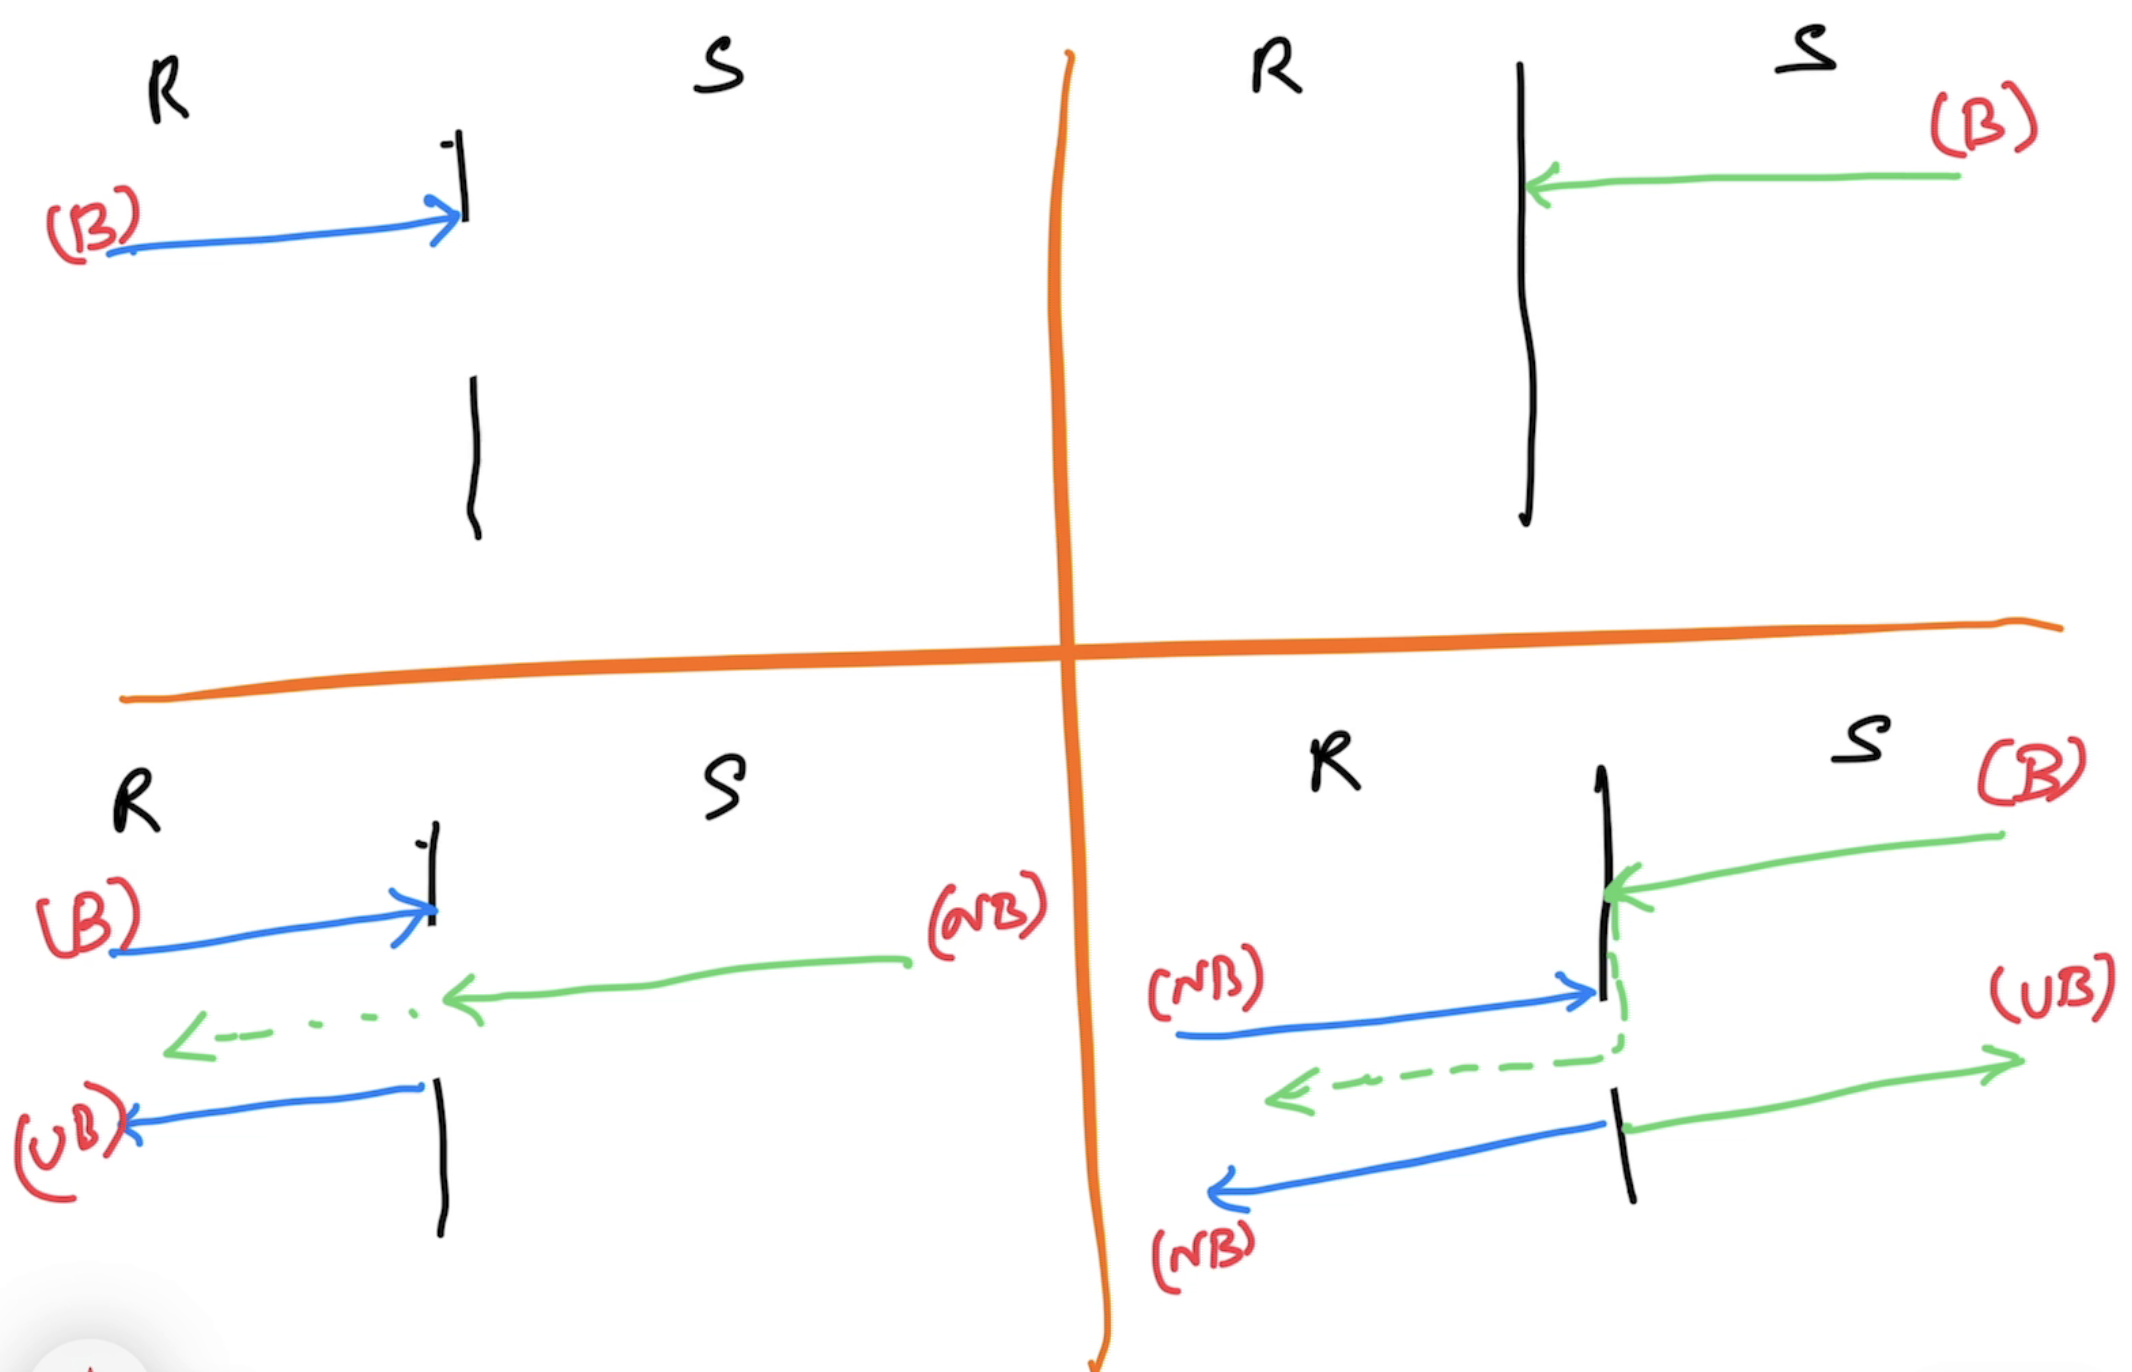 R S
(B)
R S
(B)
R S
(B) (NB)
(UB)
R S
(B)
(NB) (UB)
(NB)